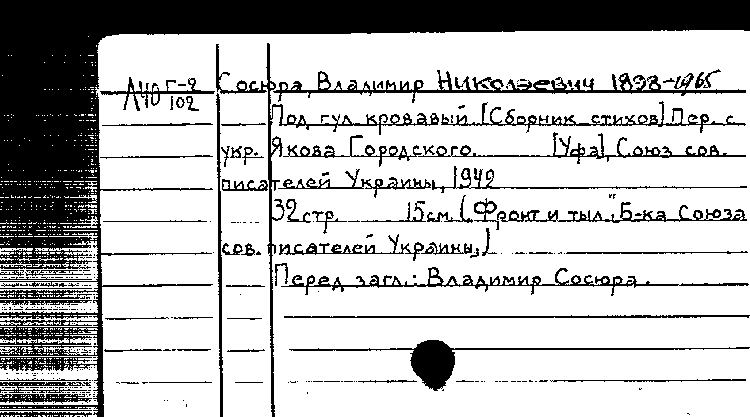 Л40 Г-2/102 Сосюра, Владимир Николаевич 1898-1965
Под гул кровавый. [Сборник стихов] Пер. с
укр. Якова Городского. [Уфа], Союз сов.
писателей Украины, 1942
32 стр. 15 см. (Фронт и тыл". Б-ка Союза
сов. писателей Украины,)
Перед загл.: Владимир Сосюра.